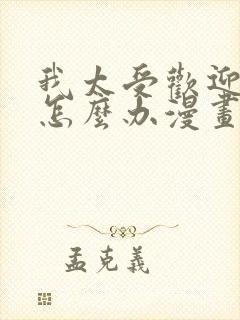 我太受歡迎
怎麼办漫畫
孟克義